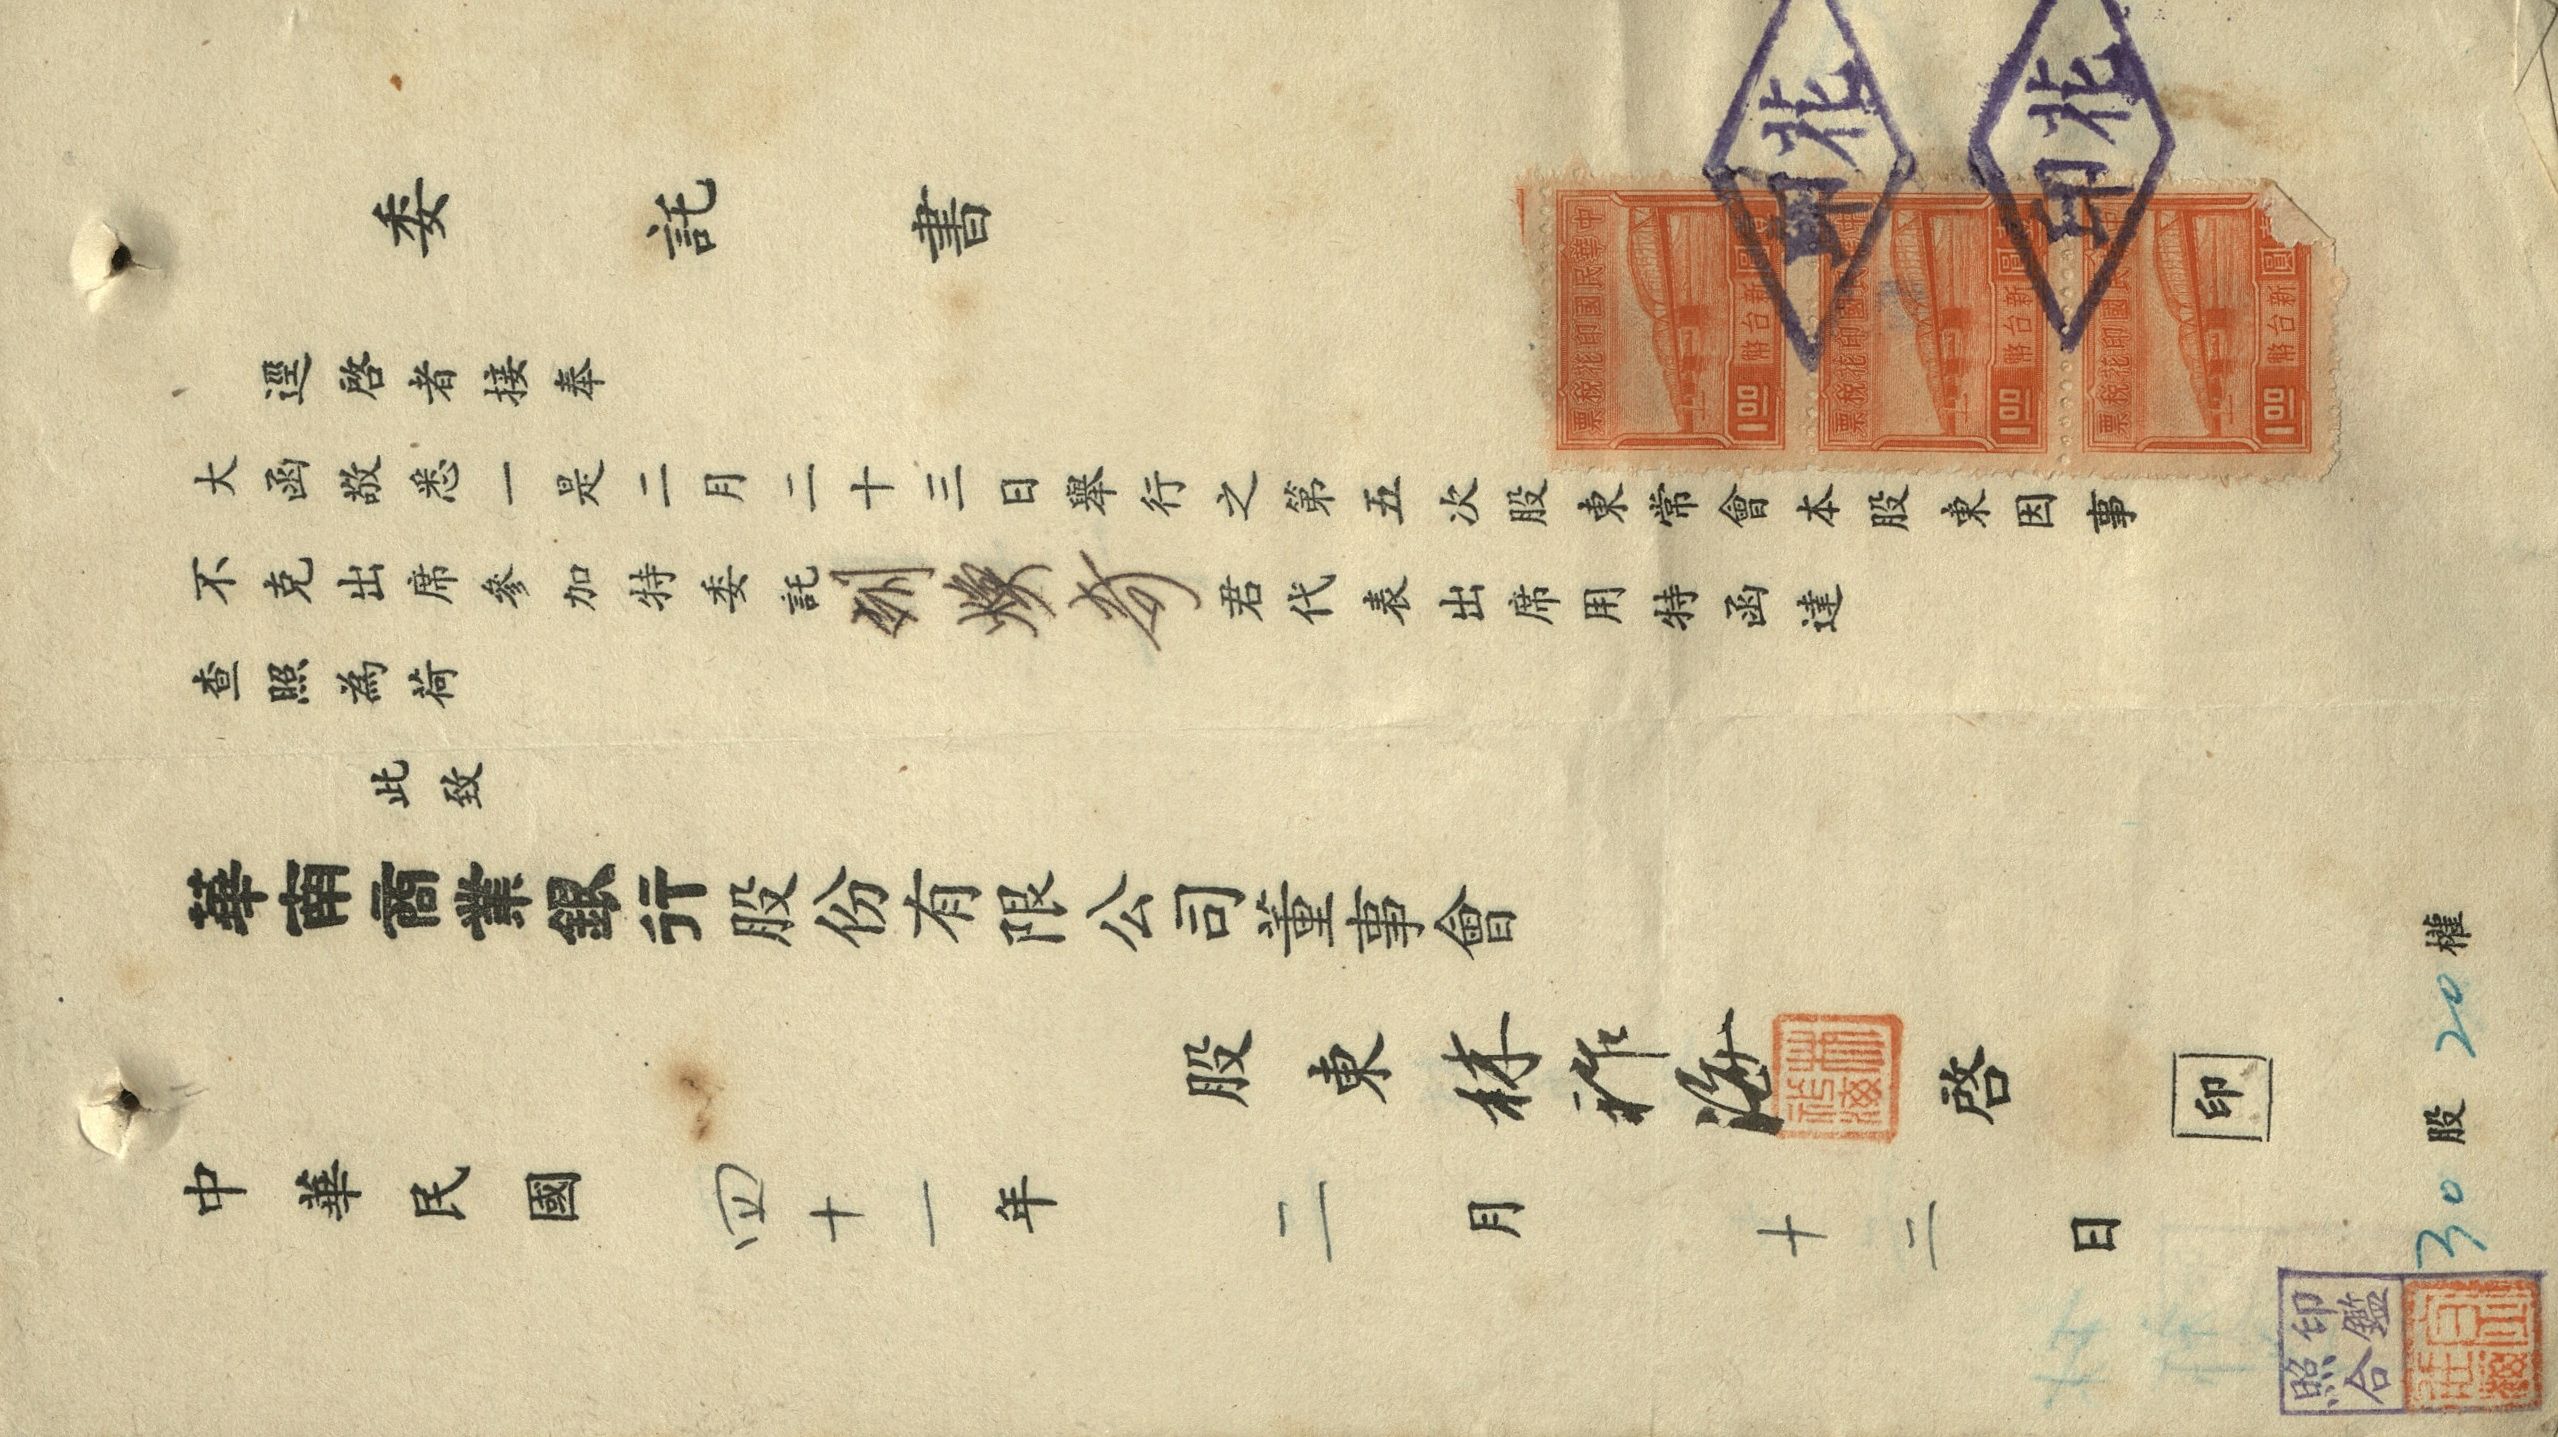 委託書
逕啓者接奉
大函敬悉一是二月二十三日舉行之第五次股東常會本股東因事
不克出席參加特委託劉燦芳君代表出席用特函達
查照為荷
此致
華南商業銀行股份有限公司董事會
股東林祚海啓 印
中華民國四十一年二月十二日
30股20權
印鑑
照合
中華民國印花税票
壹圓
新台幣
1.00
中華民國印花税票
圓
新台幣
1.00
民國印花税票
圓
新台幣
1.00
印花
印花